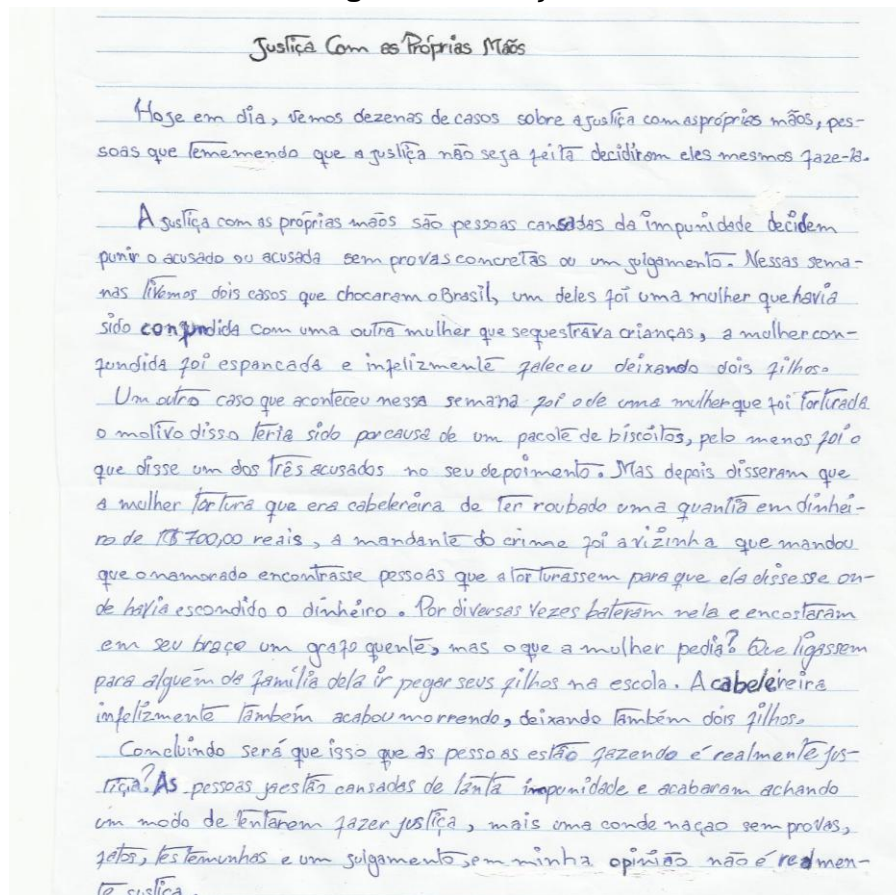 Justiça Com as Próprias Mãos
Hoje em dia, vemos dezenas de casos sobre a justiça com as próprias mãos, pes-
soas que tememendo que a justiça não seja feita decidiram eles mesmos faze-la.
A justiça com as próprias mãos são pessoas cansadas da impunidade decidem
punir o acusado ou acusada sem provas concretas ou um julgamento. Nessas sema-
nas tivemos dois casos que chocaram o Brasil, um deles foi uma mulher que havia
sido confundida com uma outra mulher que sequestrava crianças, a mulher con-
fundida foi espancada e infelizmente faleceu deixando dois filhos.
Um outro caso que aconteceu nessa semana foi o de uma mulher que foi torturada
o motivo disso teria sido por causa de um pacote de biscoitos, pelo menos foi o
que disse um dos três acusados no seu depoimento. Mas depois disseram que
a mulher tortura que era cabelereira de ter roubado uma quantia em dinhei-
ro de R$ 700,00 reais, a mandante do crime foi a vizinha que mandou
que o namorado encontrasse pessoas que a torturassem para que ela dissesse on-
de havia escondido o dinheiro. Por diversas vezes bateram nela e encostaram
em seu braço um grafo quente, mas o que a mulher pedia? Que ligassem
para alguém da família dela ir pegar seus filhos na escola. A cabelereira
infelizmente também acabou morrendo, deixando também dois filhos.
Concluindo será que isso que as pessoas estão fazendo é realmente jus-
tiça? As pessoas ja estão cansadas de tanta impunidade e acabaram achando
um modo de tentarem fazer justiça, mais uma condenaçao sem provas,
fatos, testemunhas e um julgamento, em minha opinião não é realmen-
te justiça.